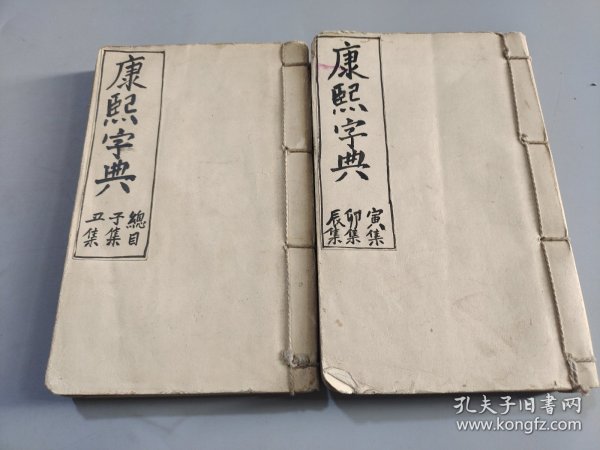 康熙字典
總目
子集
丑集
康熙字典
寅集
卯集
辰集
孔夫子旧书网
www.kongfz.com